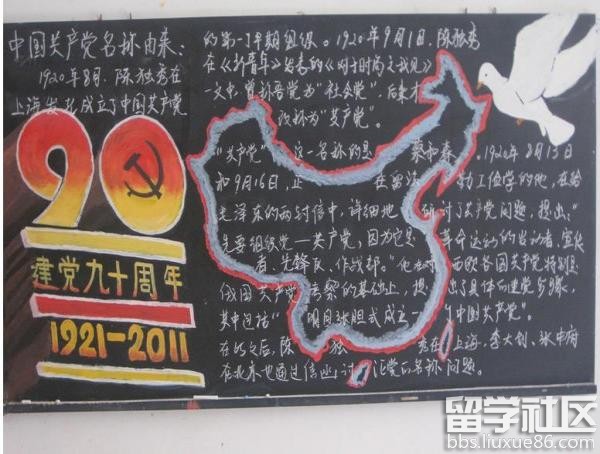 中国共产党名称由来:
1920年8月,陈独秀在
上海发起成立了中国共产党
的第一个早期组织。1920年9月1,陈独秀
在《新青年》发表的《对于时局之我见》
一文中,曾称吾党为"社会党",后来才
改称为"共产党"。
"共产党"这一名称的是 蔡和森。1920年8月13日
和9月16日,正 在 勤工俭学的他,在给
毛泽东的两封信中,详细地 研讨了共产党问题,提出:"
先要组织党—共产党,因为它是 革命运动的发动者、宣传
者、先锋队、作战部。"他 西欧各国共产党特别是
俄国共产党考察的基础上,提 出了具体的建党步骤,
其中包括" 明目张胆式成立一 中国共产党"。
在此之后,陈 独 秀在 上海,李大钊、张申府
在北京也通过信函讨 论党的名称问题。
90
建党九十周年
1921-2011
留学社区
bbs.liuxue86.com